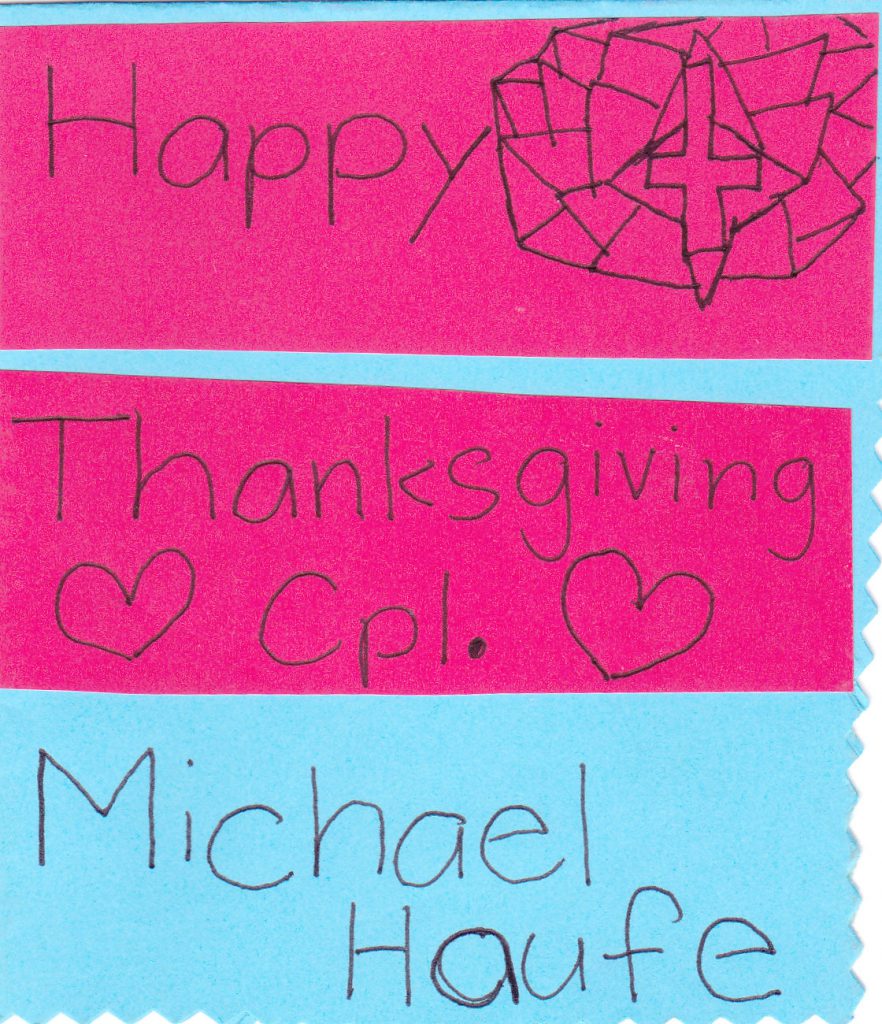 Happy
Thanksgiving
Cpl.
Michael
Haufe